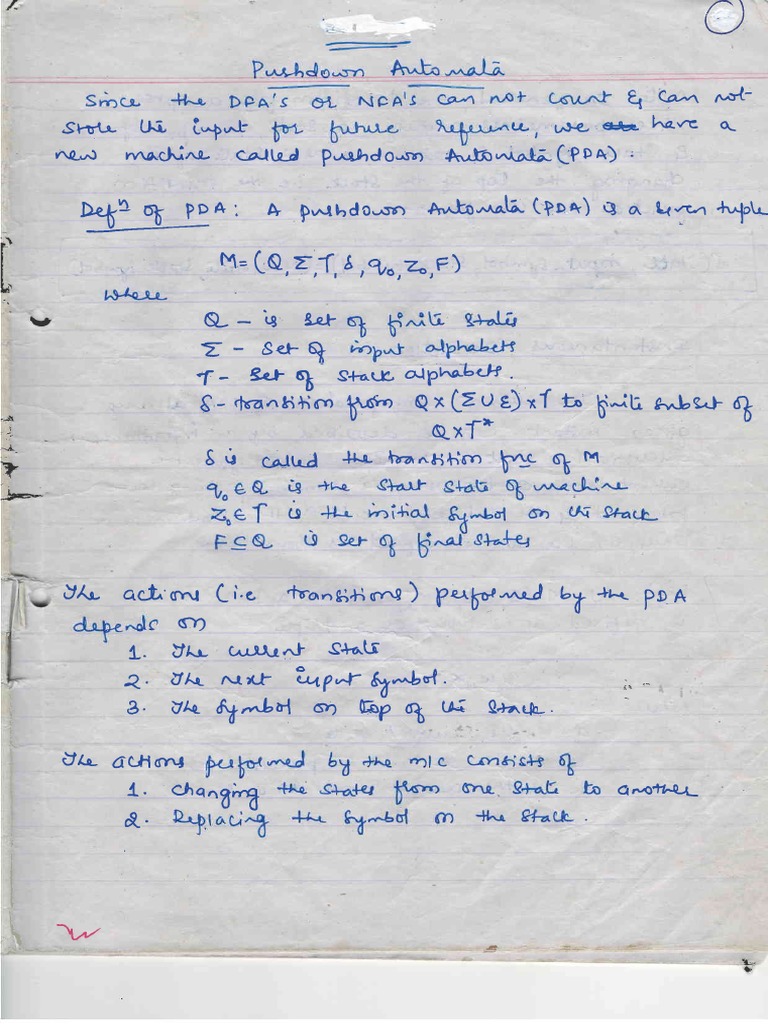 Pushdown Automata
Since the DFA's or NFA's can not count & can not
store the input for future reference, we have a
new machine called pushdown Automata (PDA).
Defn of PDA: A pushdown Automata (PDA) is a seven tuple
M = (Q, Σ, Γ, δ, q0, Z0, F)
where
Q - is set of finite states
Σ - set of input alphabets
Γ - set of stack alphabets.
δ - transition from Q×(Σ∪ε)×Γ to finite subset of
Q×Γ*
δ is called the transition fnc of M
q0 ∈ Q is the start state of machine
Z0 ∈ Γ is the initial symbol on the stack
F ⊆ Q is set of final states
The actions (i.e transitions) performed by the PDA
depends on
1. The current state
2. The next input symbol.
3. The symbol on top of the stack.
The actions performed by the m/c consists of
1. changing the states from one state to another
2. Replacing the symbol on the stack.